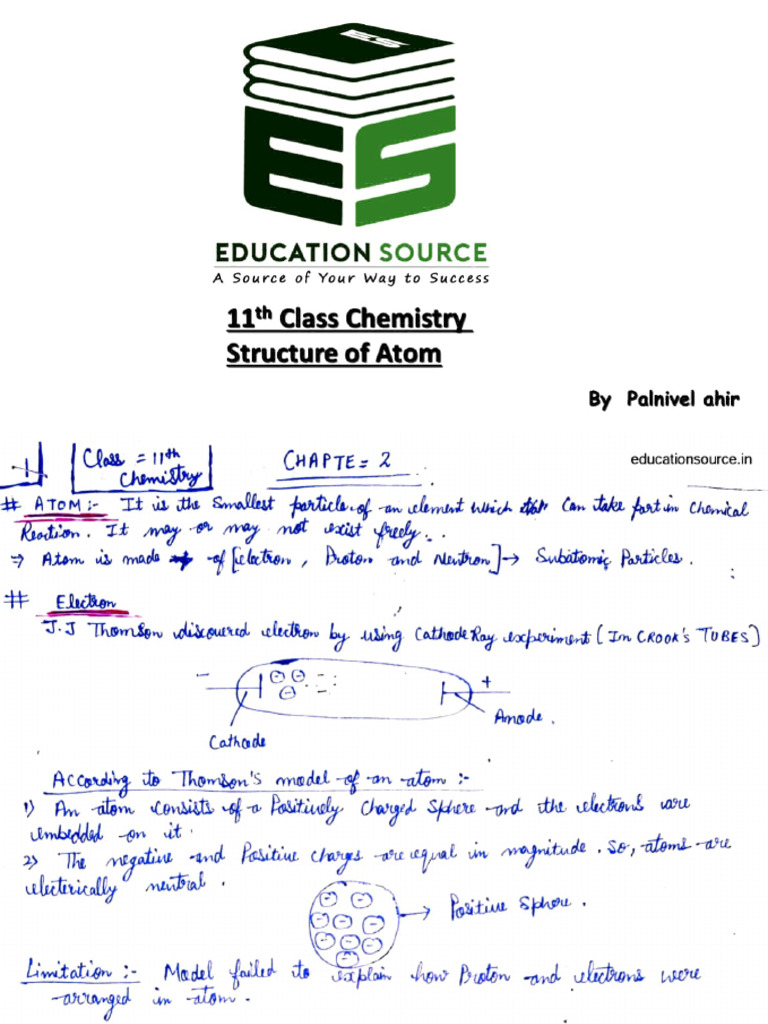 ES
ES
EDUCATION SOURCE
A Source of Your Way to Success
11th Class Chemistry
Structure of Atom
By Palnivel ahir
educationsource.in
1
Class = 11th
Chemistry
CHAPTE = 2
# ATOM :- It is the smallest particle of an element which can take part in chemical
Reaction. It may or may not exist freely.
⇒ Atom is made of [electron, Proton and Neutron] → Subatomic Particles.
# Electron
J.J Thomson discovered electron by using Cathode Ray experiment (In CROOK'S TUBES)
- +
Anode.
Cathode
According to Thomson's model of an atom :-
1) An atom consists of a Positively Charged Sphere and the electrons are
embedded on it.
2) The negative and Positive charges are equal in magnitude. So, atoms are
electerically neutral.
→ Positive Sphere.
Limitation :- Model failed to explain how Proton and electrons were
arranged in atom.